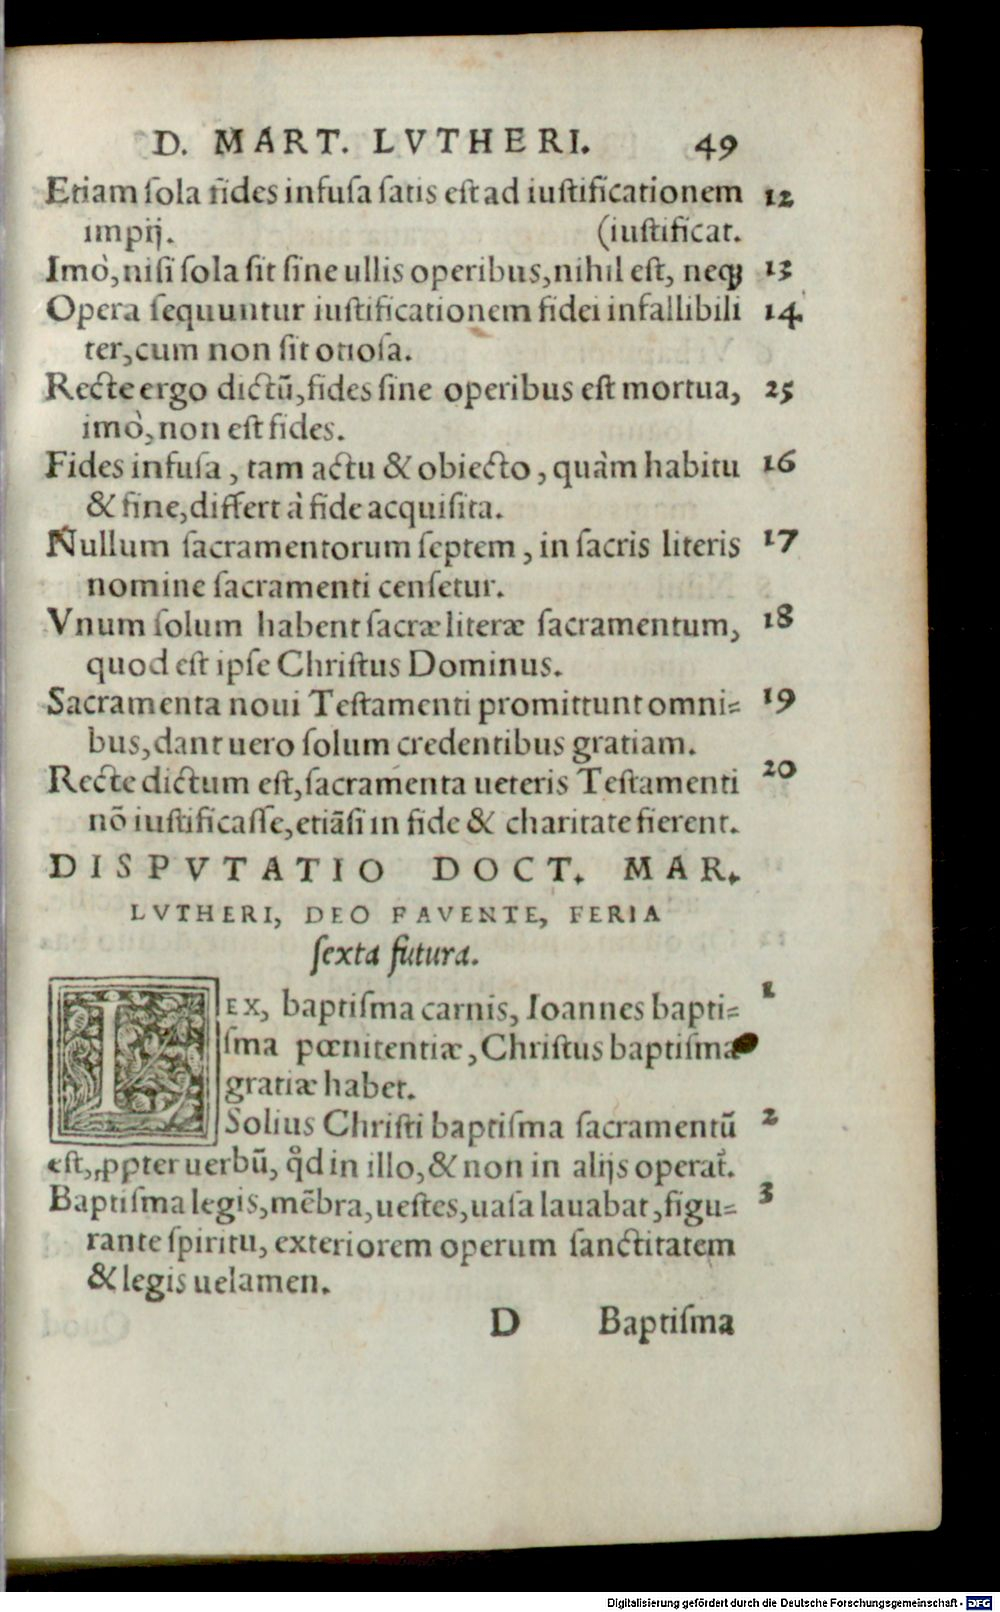 D. MART. LVTHERI. 49
Etiam ſola fides infuſa ſatis eſt ad iuſtificationem 12
impij. (iuſtificat.
Imò, niſi ſola ſit ſine ullis operibus, nihil eſt, neqꝫ 13
Opera ſequuntur iuſtificationem fidei infallibili 14
ter, cum non ſit otioſa.
Recte ergo dictũ, fides ſine operibus eſt mortua, 25
imò, non eſt fides.
Fides infuſa, tam actu & obiecto, quàm habitu 16
& fine, differt à fide acquiſita.
Nullum ſacramentorum ſeptem, in ſacris literis 17
nomine ſacramenti cenſetur.
Vnum ſolum habent ſacræ literæ ſacramentum, 18
quod eſt ipſe Chriſtus Dominus.
Sacramenta noui Teſtamenti promittunt omni= 19
bus, dant uero ſolum credentibus gratiam.
Recte dictum eſt, ſacramenta ueteris Teſtamenti 20
nõ iuſtificaſſe, etiãſi in fide & charitate fierent.
DISPVTATIO DOCT. MAR.
LVTHERI, DEO FAVENTE, FERIA
ſexta futura.
LEX, baptiſma carnis, Ioannes bapti= 1
ſma pœnitentiæ, Chriſtus baptiſma
gratiæ habet.
Solius Chriſti baptiſma ſacramentũ 2
eſt, ꝓpter uerbũ, qd̊ in illo, & non in alijs operat᷑.
Baptiſma legis, mẽbra, ueſtes, uaſa lauabat, figu= 3
rante ſpiritu, exteriorem operum ſanctitatem
& legis uelamen.
D Baptiſma
Digitalisierung gefördert durch die Deutsche Forschungsgemeinschaft - DFG